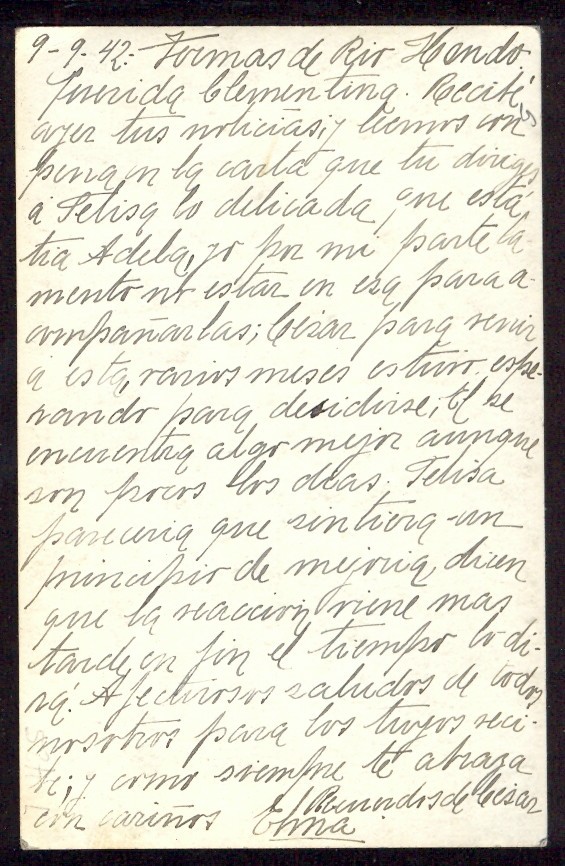 9-9-42. Termas de Rio Hondo.
Querida Clementina. Recibí
ayer tus noticias; y leemos con
pena en la carta que tu diriges
a Felisa lo delicada que está
tia Adela, yo por mi parte la-
mento no estar en esa para a-
compañarlas; César para venir
a esta, varios meses estuvo espe-
rando para desidirse, El se
encuentra algo mejor aunque
son pocos los dias. Felisa
pareceria que sintiera un
principio de mejoria, dicen
que la reacción viene mas
tarde, en fin el tiempo lo di-
rá. Afectuosos saludos de todos
nosotros para los tuyos reci-
be; y como siempre te abraza
Recuerdos de César
con cariños Elma